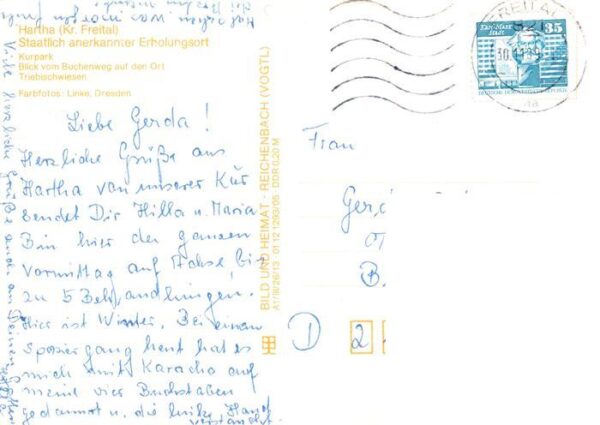 Hartha (Kr. Freital)
Staatlich anerkannter Erholungsort
Kurpark
Blick vom Buchenweg auf den Ort
Triebischwiesen
Farbfotos: Linke, Dresden
Liebe Gerda!
Herzliche Grüße aus
Hartha von unserer Kur
sendet Dir Hilla u. Maria
Bin hier den ganzen
Vormittag auf Achse, bis
zu 5 Behandlungen.
Hier ist Winter. Bei einem
Spaziergang heut hat es
mich mit Karacho auf
meine vier Buchstaben
gedonnert u. die linke Hand
verstaucht
Viele herzliche Grüße auch an Deinen
BILD UND HEIMAT · REICHENBACH (VOGTL)
A1/B/28/13 01 12 1293/05 DDR 0,20 M
FREITAL
Karl-Marx-
Stadt
35
DEUTSCHE DEMOKRATISCHE REPUBLIK
Frau
Ger
B.
D 2